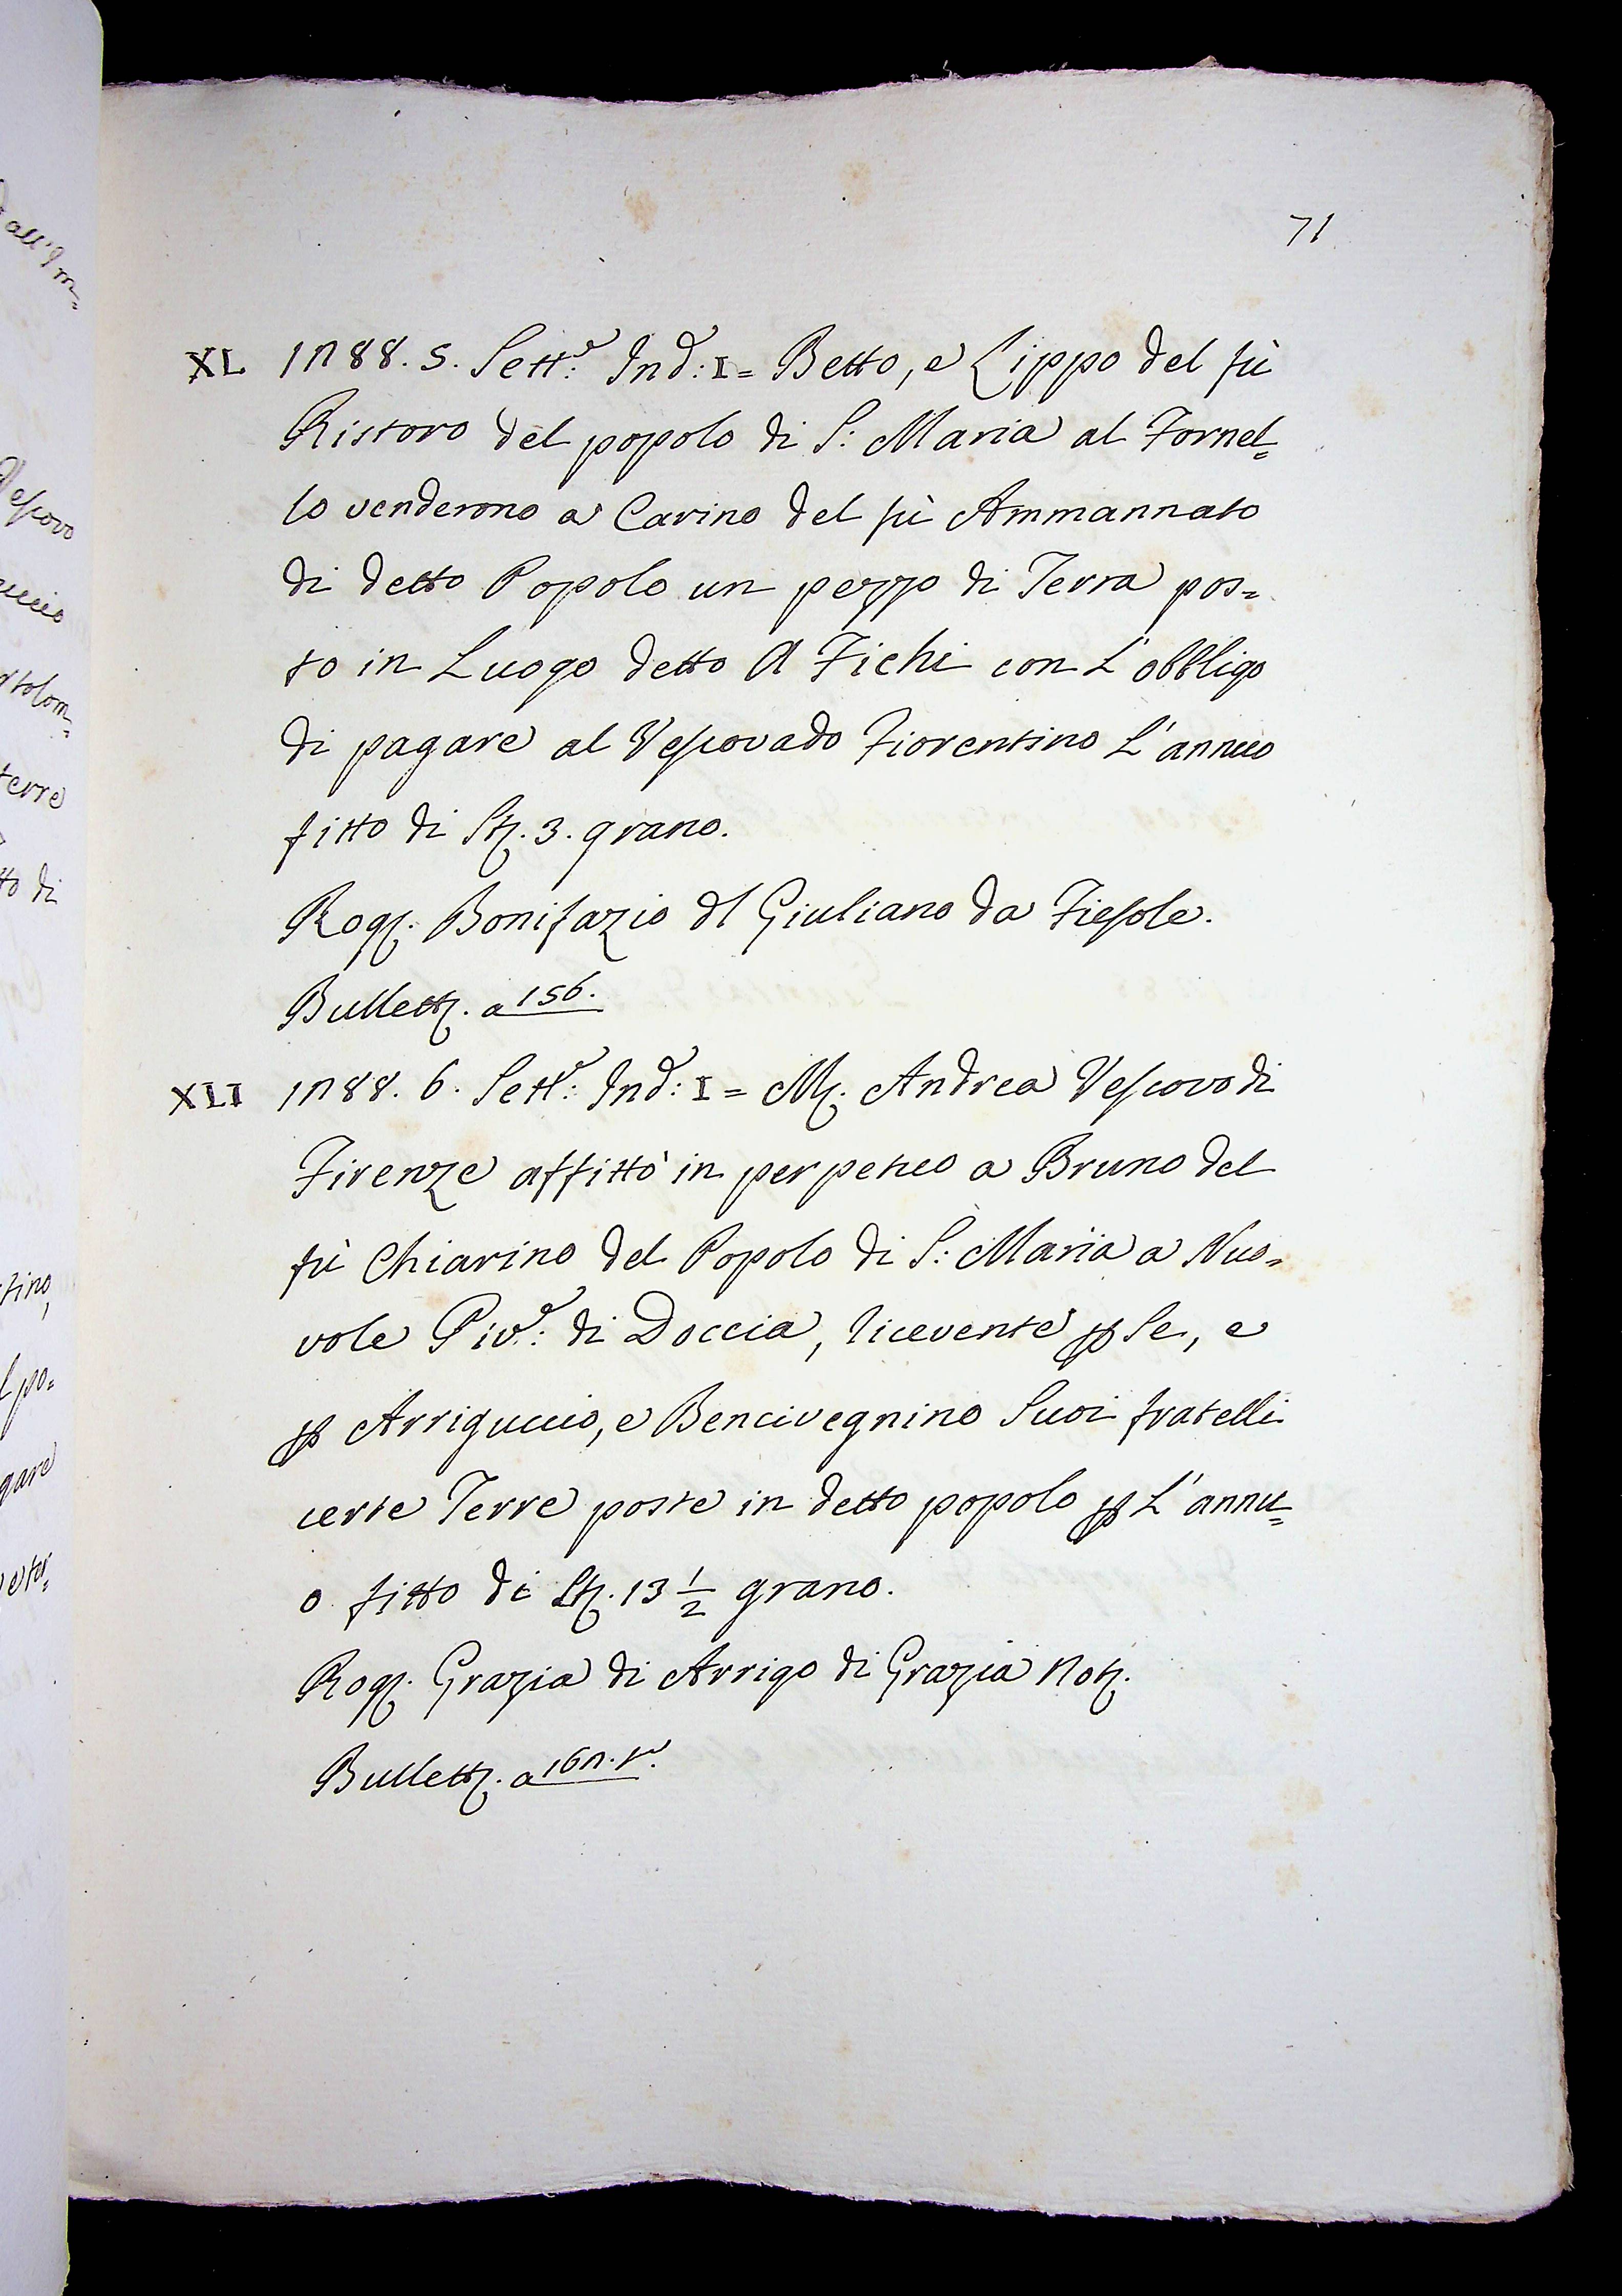 all'Im=
Vescovo
uccio
rtolom=
terre
tto di
tino,
l po=
gare
71
XL 1288. 5. Sett.e: Ind: I = Betto, e Lippo del fù
Ristoro del popolo di S: Maria al Fornel=
lo venderono a Carino del fù Ammannato
di detto Popolo un pezzo di Terra pos=
to in Luogo detto A Fichi con L'obbligo
di pagare al Vescovado Fiorentino L'annuo
fitto di St. 3. grano.
Rog. Bonifazio dl Giuliano da Fiesole.
Bullett. a 156.
XLI 1288. 6. Sett.e: Ind: I = M. Andrea Vescovo di
Firenze affittò in perpetuo a Bruno del
fù Chiarino del Popolo di S: Maria a Nuo=
vole Piv.e: di Doccia, ricevente p Se, e
p Arriguccio, e Bencivegnino Suoi fratelli
certe Terre poste in detto popolo p L'annu=
o fitto di St. 13 1/2 grano.
Rog. Grazia di Arrigo di Grazia Not.
Bullett. a 162. t.